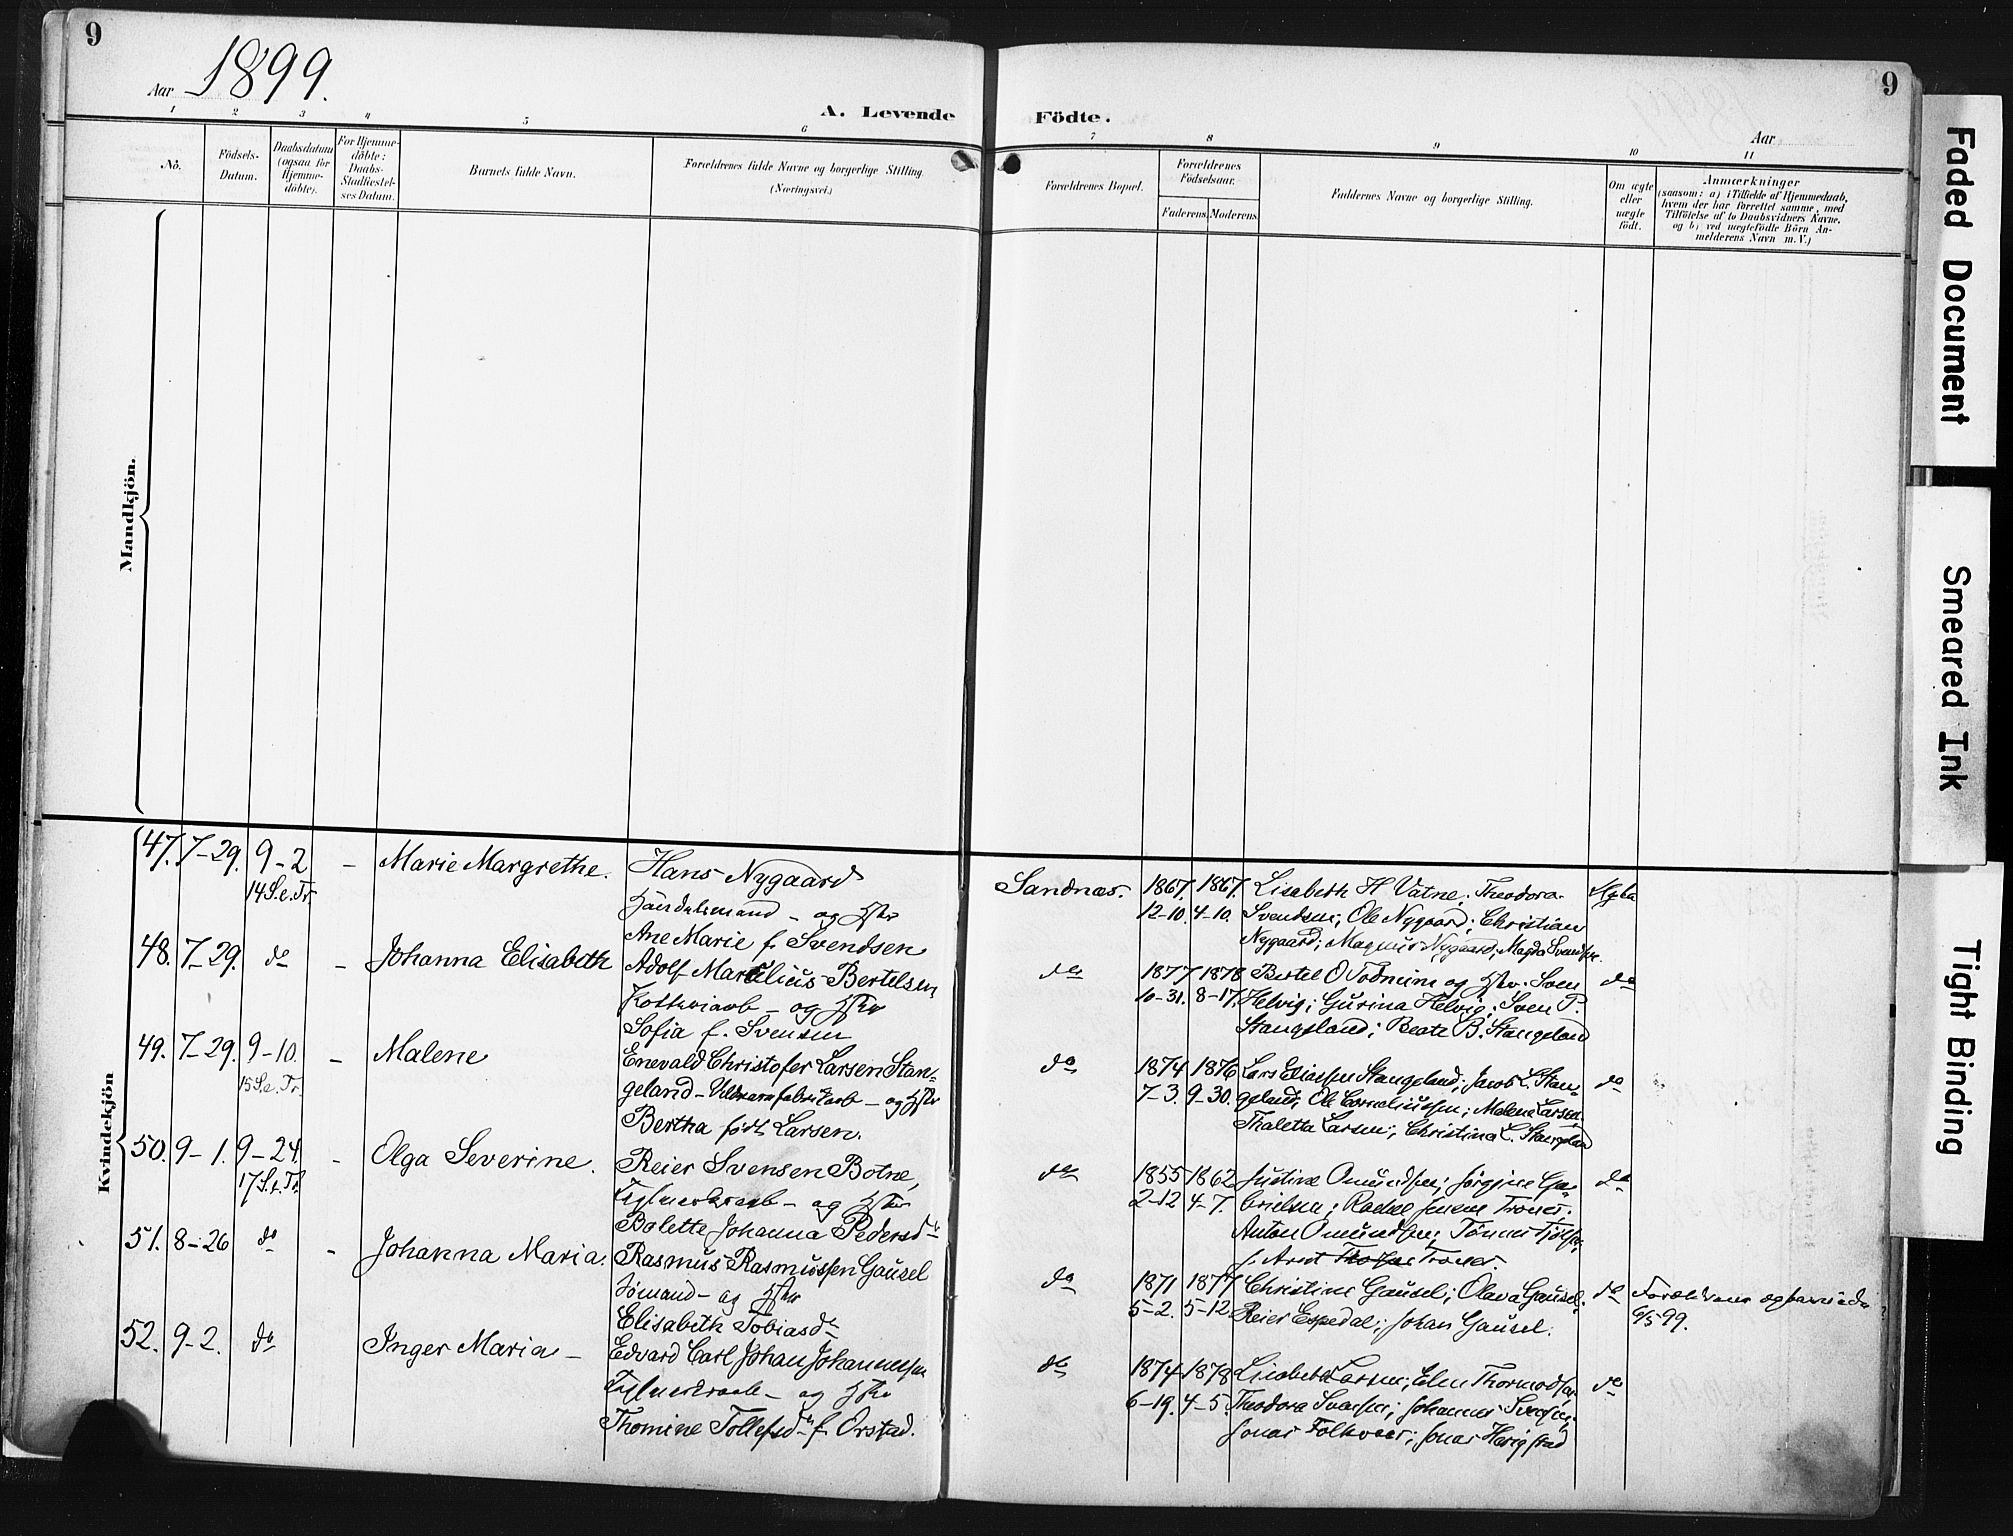 9
Aar 1899.
A. Levende
1 2 3 4 5 6
Nô.
Födsels-
Datum.
Daabsdatum
(ogsaa for
Hjemme-
döbte).
For Hjemme-
döbte:
Daabs-
Stadfæstel-
ses Datum.
Barnets fulde Navn.
Forældrenes fulde Navne og borgerlige Stilling.
(Næringsvei.)
Mandkjön.
Kvindekjön
47. 7-29. 9-2 - Marie Margrethe. Hans Nygaard
14 S.e.Tr.
Handelsmand - og Hstr
Ane Marie f. Svendsen
48. 7-29. do - Johanna Elisabeth Adolf Marcilius Bertelsen
og Hstr
Sofia f. Svensen
49. 7-29. 9-10. - Malene Enevald Christofer Larsen Stan-
15 S.e.Tr.
geland - Uldvarefabrikarb - og Hstr
Bertha født Larsen.
50. 9-1. 9-24. - Olga Severine. Reier Svensen Botne,
17 S.e.Tr.
Teglverksarb - og Hstr
Bolette Johanna Pedersdr
51. 8-26 do - Johanna Maria. Rasmus Rasmussen Gausel
Sømand - og Hstr
Elisabeth Tobiasdr
52. 9-2. do Inger Maria - Edvard Carl Johan Johannessen
Teglverksarb - og Hstr
Thomine Tollefsdr f. Orstad.
9
Födte.
Aar
7 8 9 10 11
Forældrenes Bopæl.
Forældrenes
Födselsaar.
Faderens. Moderens.
Faddernes Navne og borgerlige Stilling.
Om ægte
eller
uægte
födt.
Anmærkninger
(saasom: a) i Tilfælde af Hjemmedaab,
hvem der har forrettet samme, med
Tilföielse af to Daabsvidners Navne,
og b) ved uægtefödte Börn An-
melderens Navn m. V.)
Sandnæs. 1867. 1867. Lisabeth H Vatne; Theodora Ægte
12-10. 4-10. Svendsen; Ole Nygaard; Christian
Nygaard; Magnus Nygaard; Magda Svendsen.
do 1877 1878 Bertel O Todneim og Hstr. Sven do
10-31. 8-17. Helvig; Gurina Helvig; Sven P.
Stangeland; Beate B. Stangeland
do 1874 1876 Lars Eliassen Stangeland; Jacob L. Stan- do
7-3. 9-30. geland; Ole Corneliussen; Malene Larsen,
Thaletta Larsen; Christina L. Stangeland
do 1855 1862 Justine Omundsen; Jørgine Ga- do
2-12 4-7. brielsen; Rachel Jensen Trones.
Anton Omundsen;
Trones.
do 1871 1877 Christine Gausel; Olava Gausel; do Forældrene
5-2. 5-12 Reier Espedal; Johan Gausel. 6/5 99.
do 1874 1878 Lisabeth Larsen; Elen Thormodsen, do
6-19. 4-5. Theodora Svensen; Johannes Svensen,
Jonas Folkvoer; Jonas
Faded Document
Smeared Ink
Tight Binding